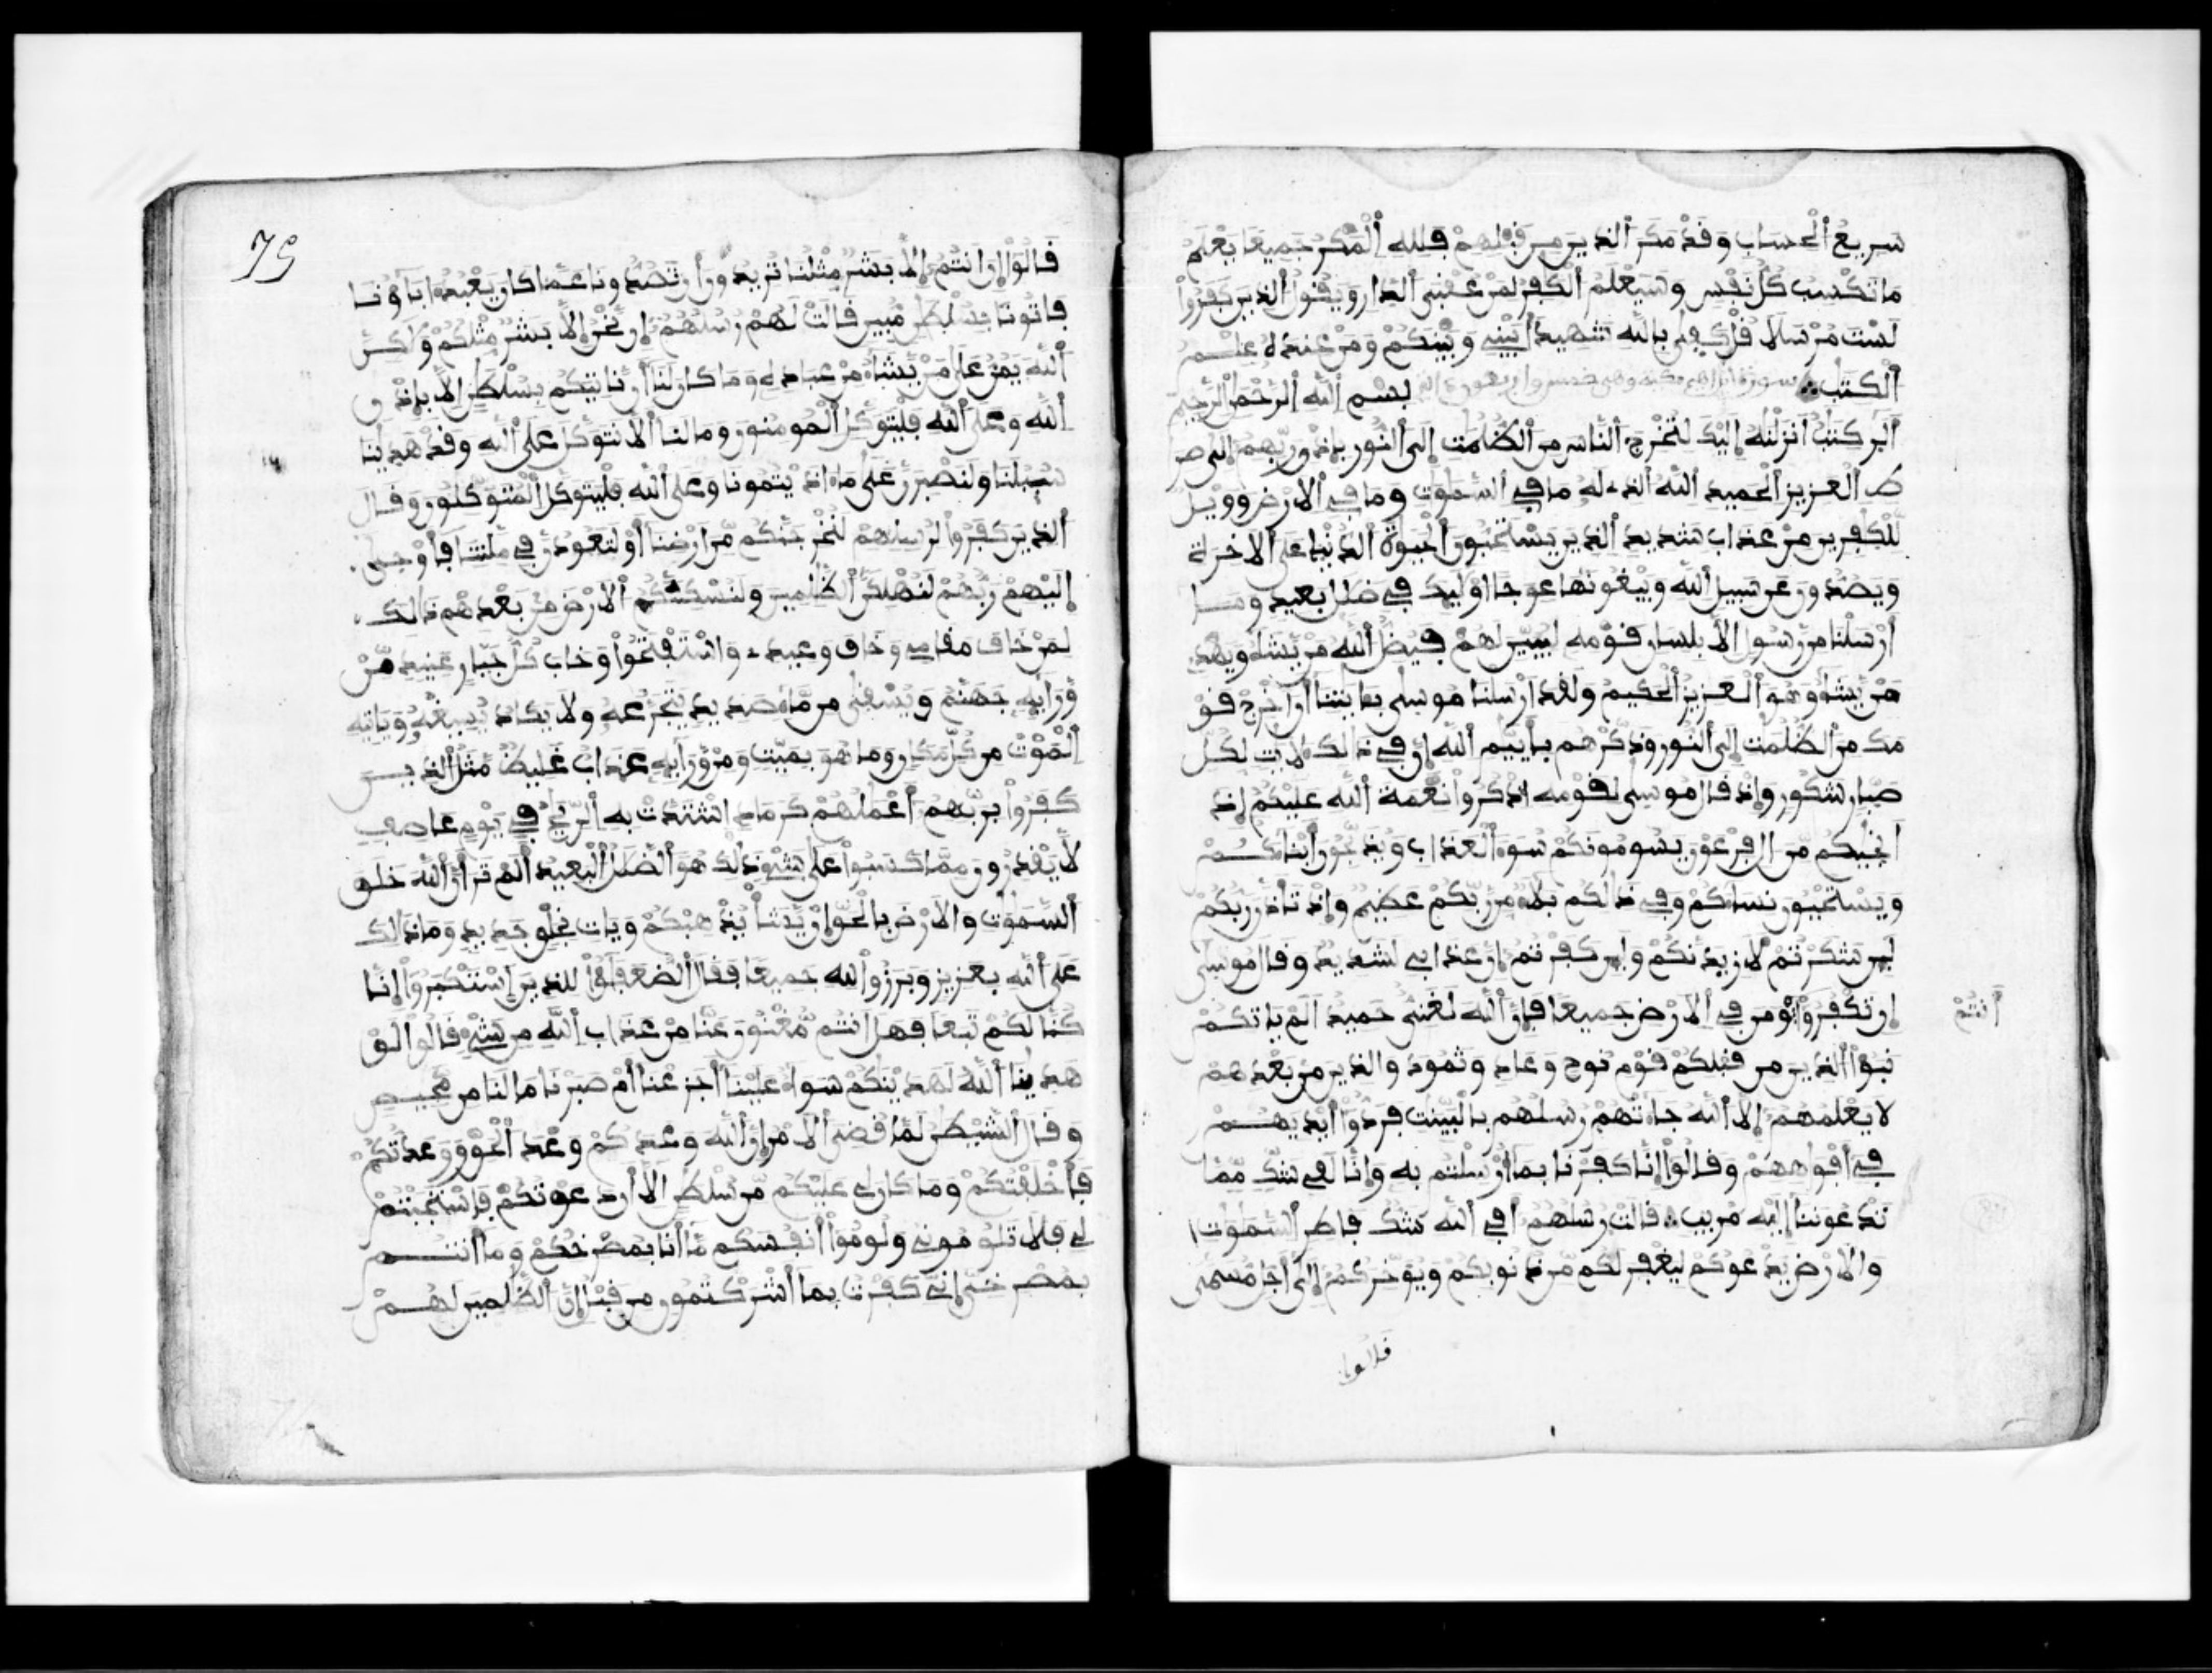 سريع الحساب وقد مكر الذين من قبلهم فلله المكر جميعا يعلم
ما تكسب كل نفس وسيعلم الكفر لمن عقبى الدار ويقول الذين كفروا
لست مرسلا قل كفى بالله شهيدا بيني وبينكم ومن عنده علم
الكتب سورة ابراهيم مكية وهي خمس بسم الله الرحمن الرحيم
الر كتب انزلنه اليك لتخرج الناس من الظلمت الى النور باذن ربهم الى صر
ط العزيز الحميد الله الذي له ما في السموت وما في الارض وويل
للكفرين من عذاب شديد الذين يستحبون الحيوة الدنيا على الاخرة
ويصدون عن سبيل الله ويبغونها عوجا اوليك في ضلل بعيد وما
ارسلنا من رسول الا بلسان قومه ليبين لهم فيضل الله من يشاء ويهدي
من يشاء وهو العزيز الحكيم ولقد ارسلنا موسى بايتنا ان اخرج قو
مك من الظلمت الى النور وذكرهم باييم الله ان في ذالك لايت لكل
صبار شكور واذ قال موسى لقومه اذكروا نعمة الله عليكم اذ
انجيكم من ال فرعون يسومونكم سوء العذاب ويذبحون ابناءكم
ويستحيون نساءكم وفي ذالكم بلاء من ربكم عظيم واذ تاذن ربكم
لين شكرتم لازيدنكم ولين كفرتم ان عذابي لشديد وقال موسى
ان تكفروا ومن في الارض جميعا فان الله لغني حميد الم ياتكم
انتم
نبؤا الذين من قبلكم قوم نوح وعاد وثمود والذين من بعدهم
لا يعلمهم الا الله جاءتهم رسلهم بالبينت فردوا ايديهم
في افوههم وقالوا انا كفرنا بما ارسلتم به وانا لفي شك مما
تدعوننا اليه مريب قالت رسلهم افي الله شك فاطر السموت
والارض يدعوكم ليغفر لكم من ذنوبكم ويوخركم الى اجل مسمى
قالوا
75
قالوا ان انتم الا بشر مثلنا تريدون ان تصدونا عما كان يعبد اباونا
فاتونا بسلطن مبين قالت لهم رسلهم ان نحن الا بشر مثلكم ولكن
الله يمن على من يشاء من عباده وما كان لنا ان ناتيكم بسلطن الا باذن
الله وعلى الله فليتوكل المومنون وما لنا الا نتوكل على الله وقد هدينا
سبلنا ولنصبرن على ما اذيتمونا وعلى الله فليتوكل المتوكلون وقال
الذين كفروا لرسلهم لنخرجنكم من ارضنا او لتعودن في ملتنا فاوحى
اليهم ربهم لنهلكن الظلمين ولنسكننكم الارض من بعدهم ذالك
لمن خاف مقامي وخاف وعيد واستفتحوا وخاب كل جبار عنيد من
ورايه جهنم ويسقى من ماء صديد يتجرعه ولا يكاد يسيغه وياتيه
الموت من كل مكان وما هو بميت ومن ورايه عذاب غليظ مثل الذين
كفروا بربهم اعملهم كرماد اشتدت به الريح في يوم عاصف
لا يقدرون مما كسبوا على شيء ذلك هو الضلل البعيد الم تر ان الله خلق
السموت والارض بالحق ان يشا يذهبكم ويات بخلق جديد وما ذالك
على الله بعزيز وبرزوا لله جميعا فقال الضعفؤا للذين استكبروا انا
كنا لكم تبعا فهل انتم مغنون عنا من عذاب الله من شيء قالوا لو
هدينا الله لهدينكم سواء علينا اجزعنا ام صبرنا ما لنا من محيص
وقال الشيطن لما قضي الامر ان الله وعدكم وعد الحق ووعدتكم
فاخلفتكم وما كان لي عليكم من سلطن الا ان دعوتكم فاستجبتم
لي فلا تلوموني ولوموا انفسكم ما انا بمصرخكم وما انتم
بمصرخي اني كفرت بما اشركتمون من قبل ان الظلمين لهم